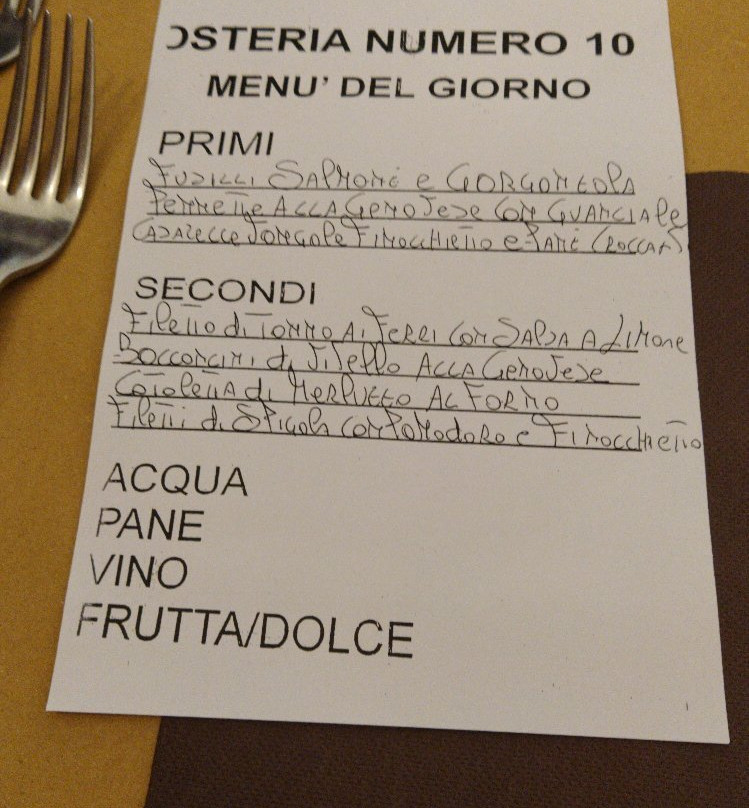 OSTERIA NUMERO 10
MENU' DEL GIORNO
PRIMI
FUSILLI SALMONE e GORGONZOLA
PENNETTE ALLA GENOVESE CON GUANCIALE
CASARECCE VONGOLE FINOCCHIETTO e PANE CROCCAN
SECONDI
Filetto di TONNO Ai FERRI CON SALSA A Limone
BOCCONCINI di Vitello ALLA GENOVESE
COTOLETTA di MERLUZZO AL FORNO
Filetti di SPIGOLA CON POMODORO e FINOCCHIETTO
ACQUA
PANE
VINO
FRUTTA/DOLCE